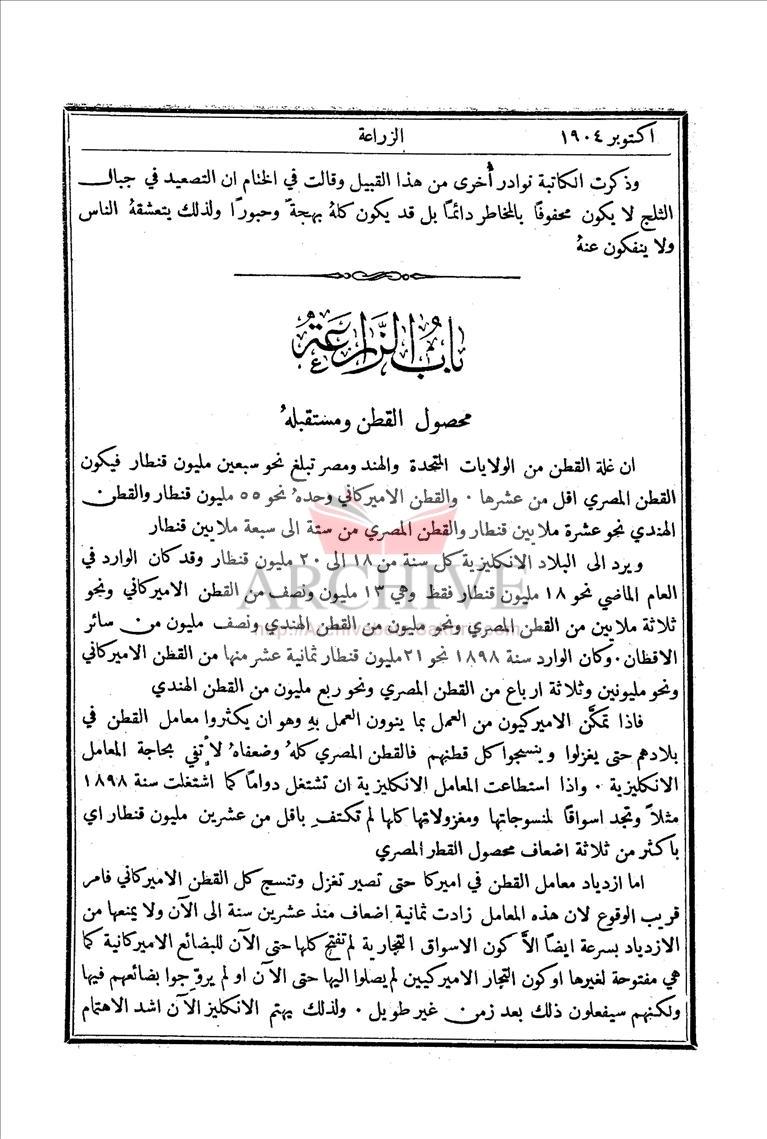 اكتوبر ١٩٠٤
الزراعة
وذكرت الكاتبة نوادر أُخرى من هذا القبيل وقالت في الختام ان التصعيد في جبال
الثلج لا يكون محفوفًا بالمخاطر دائمًا بل قد يكون كلهُ بهجةً وحبورًا ولذلك يتعشقهُ الناس
ولا ينفكون عنهُ
بابُ الزراعة
محصول القطن ومستقبلهُ
ان غلة القطن من الولايات المتحدة والهند ومصر تبلغ نحو سبعين مليون قنطار فيكون
القطن المصري اقل من عشرها ٠ والقطن الاميركاني وحدهُ نحو ٥٥ مليون قنطار والقطن
الهندي نحو عشرة ملايين قنطار والقطن المصري من ستة الى سبعة ملايين قنطار
ويرد الى البلاد الانكليزية كل سنة من ١٨ الى ٢٠ مليون قنطار وقد كان الوارد في
ARCHIVE
العام الماضي نحو ١٨ مليون قنطار فقط وهي ١٣ مليون ونصف من القطن الاميركاني ونحو
ثلاثة ملايين من القطن المصري ونحو مليون من القطن الهندي ونصف مليون من سائر
الاقطان ٠ وكان الوارد سنة ١٨٩٨ نحو ٢١ مليون قنطار ثمانية عشر منها من القطن الاميركاني
ونحو مليونين وثلاثة ارباع من القطن المصري ونحو ربع مليون من القطن الهندي
فاذا تمكَّن الاميركيون من العمل بما ينوون العمل بهِ وهو ان يكثروا معامل القطن في
بلادهم حتى يغزلوا وينسجوا كل قطنهم فالقطن المصري كلهُ وضعفاهُ لا تفي بحاجة المعامل
الانكليزية ٠ واذا استطاعت المعامل الانكليزية ان تشتغل دوامًا كما اشتغلت سنة ١٨٩٨
مثلاً وتجد اسواقًا لمنسوجاتها ومغزولاتها كلها لم تكتفِ باقل من عشرين مليون قنطار اي
باكثر من ثلاثة اضعاف محصول القطر المصري
اما ازدياد معامل القطن في اميركا حتى تصير تغزل وتنسج كل القطن الاميركاني فامر
قريب الوقوع لان هذه المعامل زادت ثمانية اضعاف منذ عشرين سنة الى الآن ولا يمنعها من
الازدياد بسرعة ايضًا الاَّ كون الاسواق التجارية لم تفتح كلها حتى الآن للبضائع الاميركانية كما
هي مفتوحة لغيرها او كون التجار الاميركيين لم يصلوا اليها حتى الآن او لم يروّجوا بضائعهم فيها
ولكنهم سيفعلون ذلك بعد زمن غير طويل ٠ ولذلك يهتم الانكليز الآن اشد الاهتمام